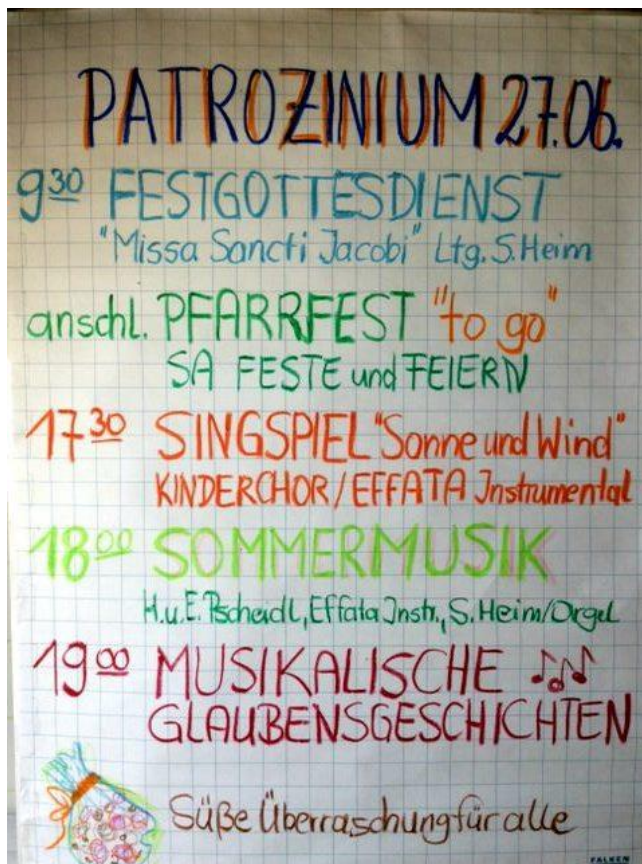 PATROZINIUM 27.06.
9³⁰ FESTGOTTESDIENST
"Missa Sancti Jacobi" Ltg. S. Heim
anschl. PFARRFEST "to go"
SA FESTE und FEIERN
17³⁰ SINGSPIEL "Sonne und Wind"
KINDERCHOR / EFFATA Instrumental
18⁰⁰ SOMMERMUSIK
H. u. E. Pscheidl, Effata Instr., S. Heim/Orgel
19⁰⁰ MUSIKALISCHE
GLAUBENSGESCHICHTEN
Süße Überraschung für alle
FALKEN